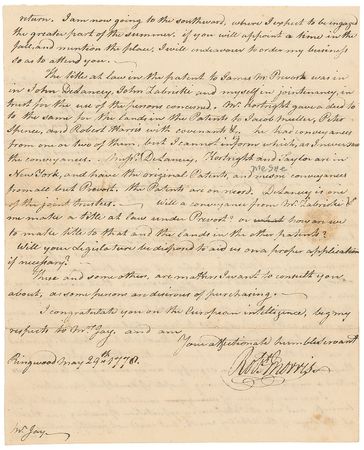 return. I am now going to the southward, where I expect to be engaged
the greater part of the summer. if you will appoint a time in the
fall, and mention the place, I will endeavour to order my business
so as to attend you.
The title at law in the patent to James M. Prevork was in
in John DeLancey, John Zabriskie and myself in jointenancy, in
trust for the use of the persons concerned. Mr. Kortright gave a deed to
to the same for the lands in the Patents to Jacob Mueller, Peter
Spence, and Robert Harris with covenants &c. he had conveyances
from one or two of them, but I cannot inform which, as I never saw
the conveyances. DeLancey, Kortright and Taylor are in
New York, and have the original Patents, and mesne conveyances
from all but Prevort. the Patents are on record. Delancey is one
of the joint trustees. Will a conveyance from Mr. Zabriskie &
me make a title at law under Prevort? or how are we
to make title to that and the lands in the other patents?
Will your Legislature be disposed to aid us on a proper application
if necessary?
These and some others, are matters I want to consult you
about, as some persons are desirous of purchasing.
I congratulate you on the European intelligence, beg my
respects to Mrs. Jay, and am
Your affectionate humble servant
Robt. Morris
Ringwood May 29th 1778.
Mr. Jay.